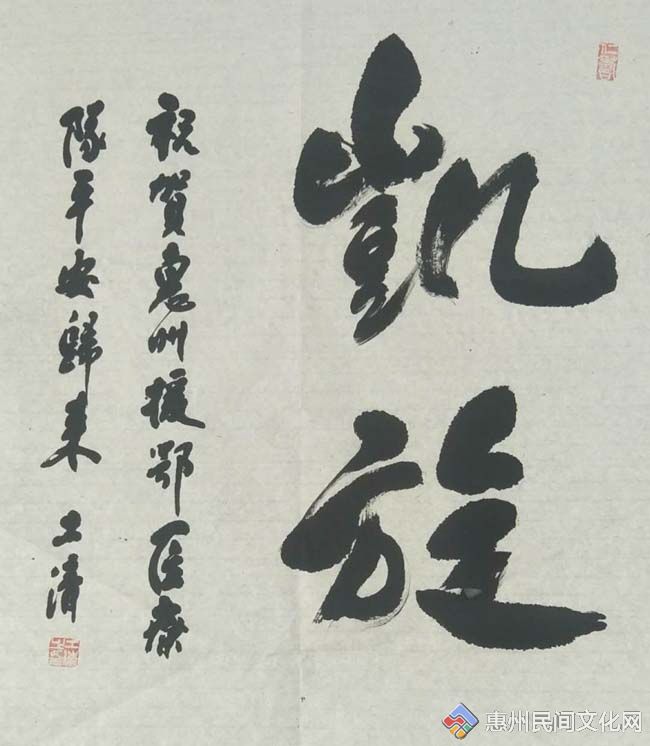 凱旋
祝賀惠州援鄂医療
隊平安歸来 士清
惠州民间文化网